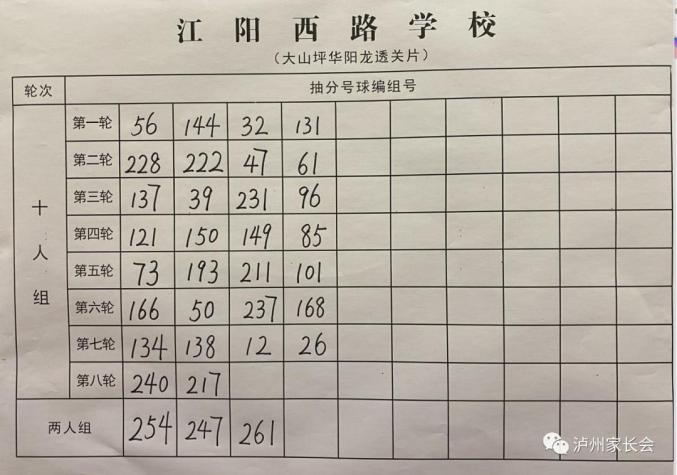 江阳西路学校
（大山坪华阳龙透关片）
轮次 抽分号球编组号
十人组
第一轮 56 144 32 131
第二轮 228 222 47 61
第三轮 137 39 231 96
第四轮 121 150 149 85
第五轮 73 193 211 101
第六轮 166 50 237 168
第七轮 134 138 12 26
第八轮 240 217
两人组 254 247 261
泸州家长会